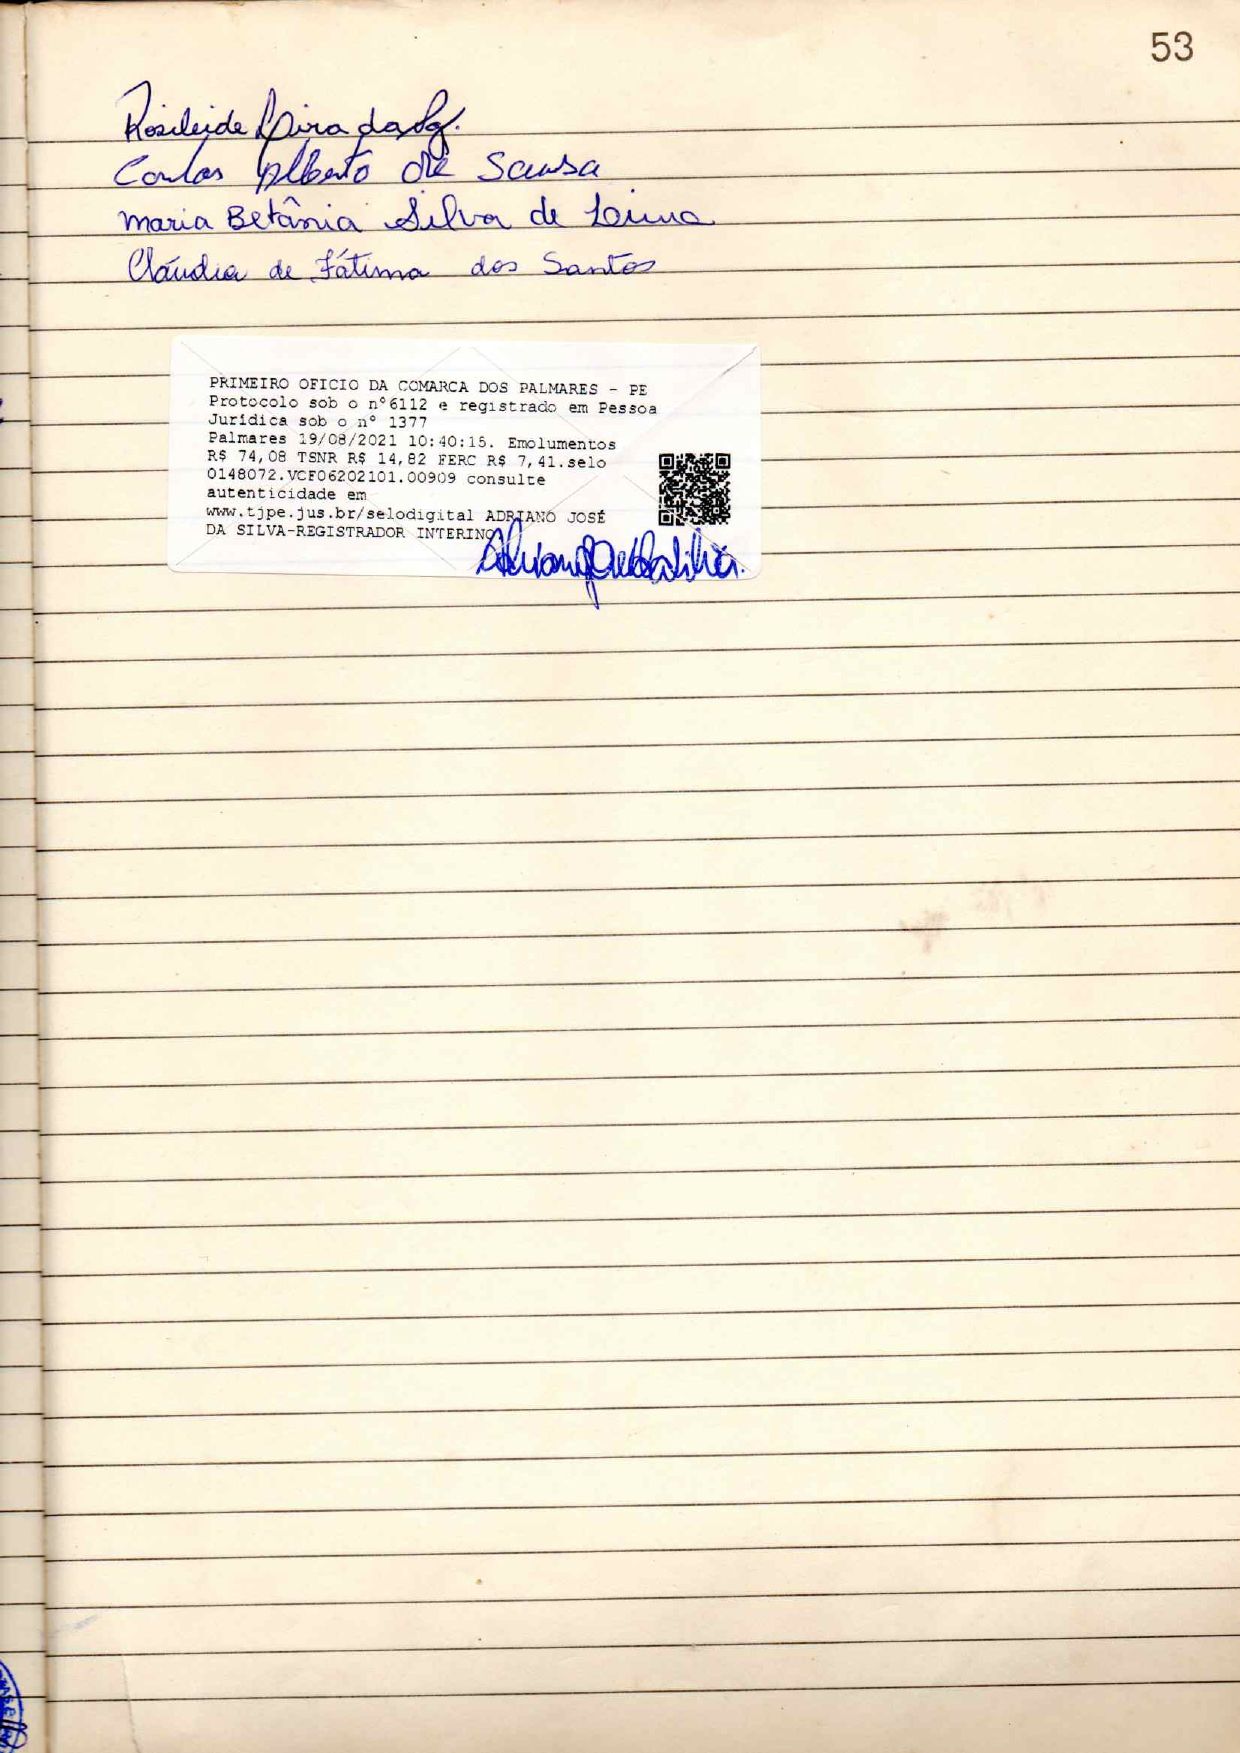 53
Rosileide Lira da Sª.
Carlos Alberto de Sousa
Maria Betânia Silva de Lima
Cláudia de Fátima dos Santos
PRIMEIRO OFICIO DA COMARCA DOS PALMARES - PE
Protocolo sob o nº6112 e registrado em Pessoa
Jurídica sob o nº 1377
Palmares 19/08/2021 10:40:15. Emolumentos
R$ 74,08 TSNR R$ 14,82 FERC R$ 7,41.selo
0148072.VCF06202101.00909 consulte
autenticidade em
www.tjpe.jus.br/selodigital ADRIANO JOSÉ
DA SILVA-REGISTRADOR INTERINO
Adriano José da Silva.